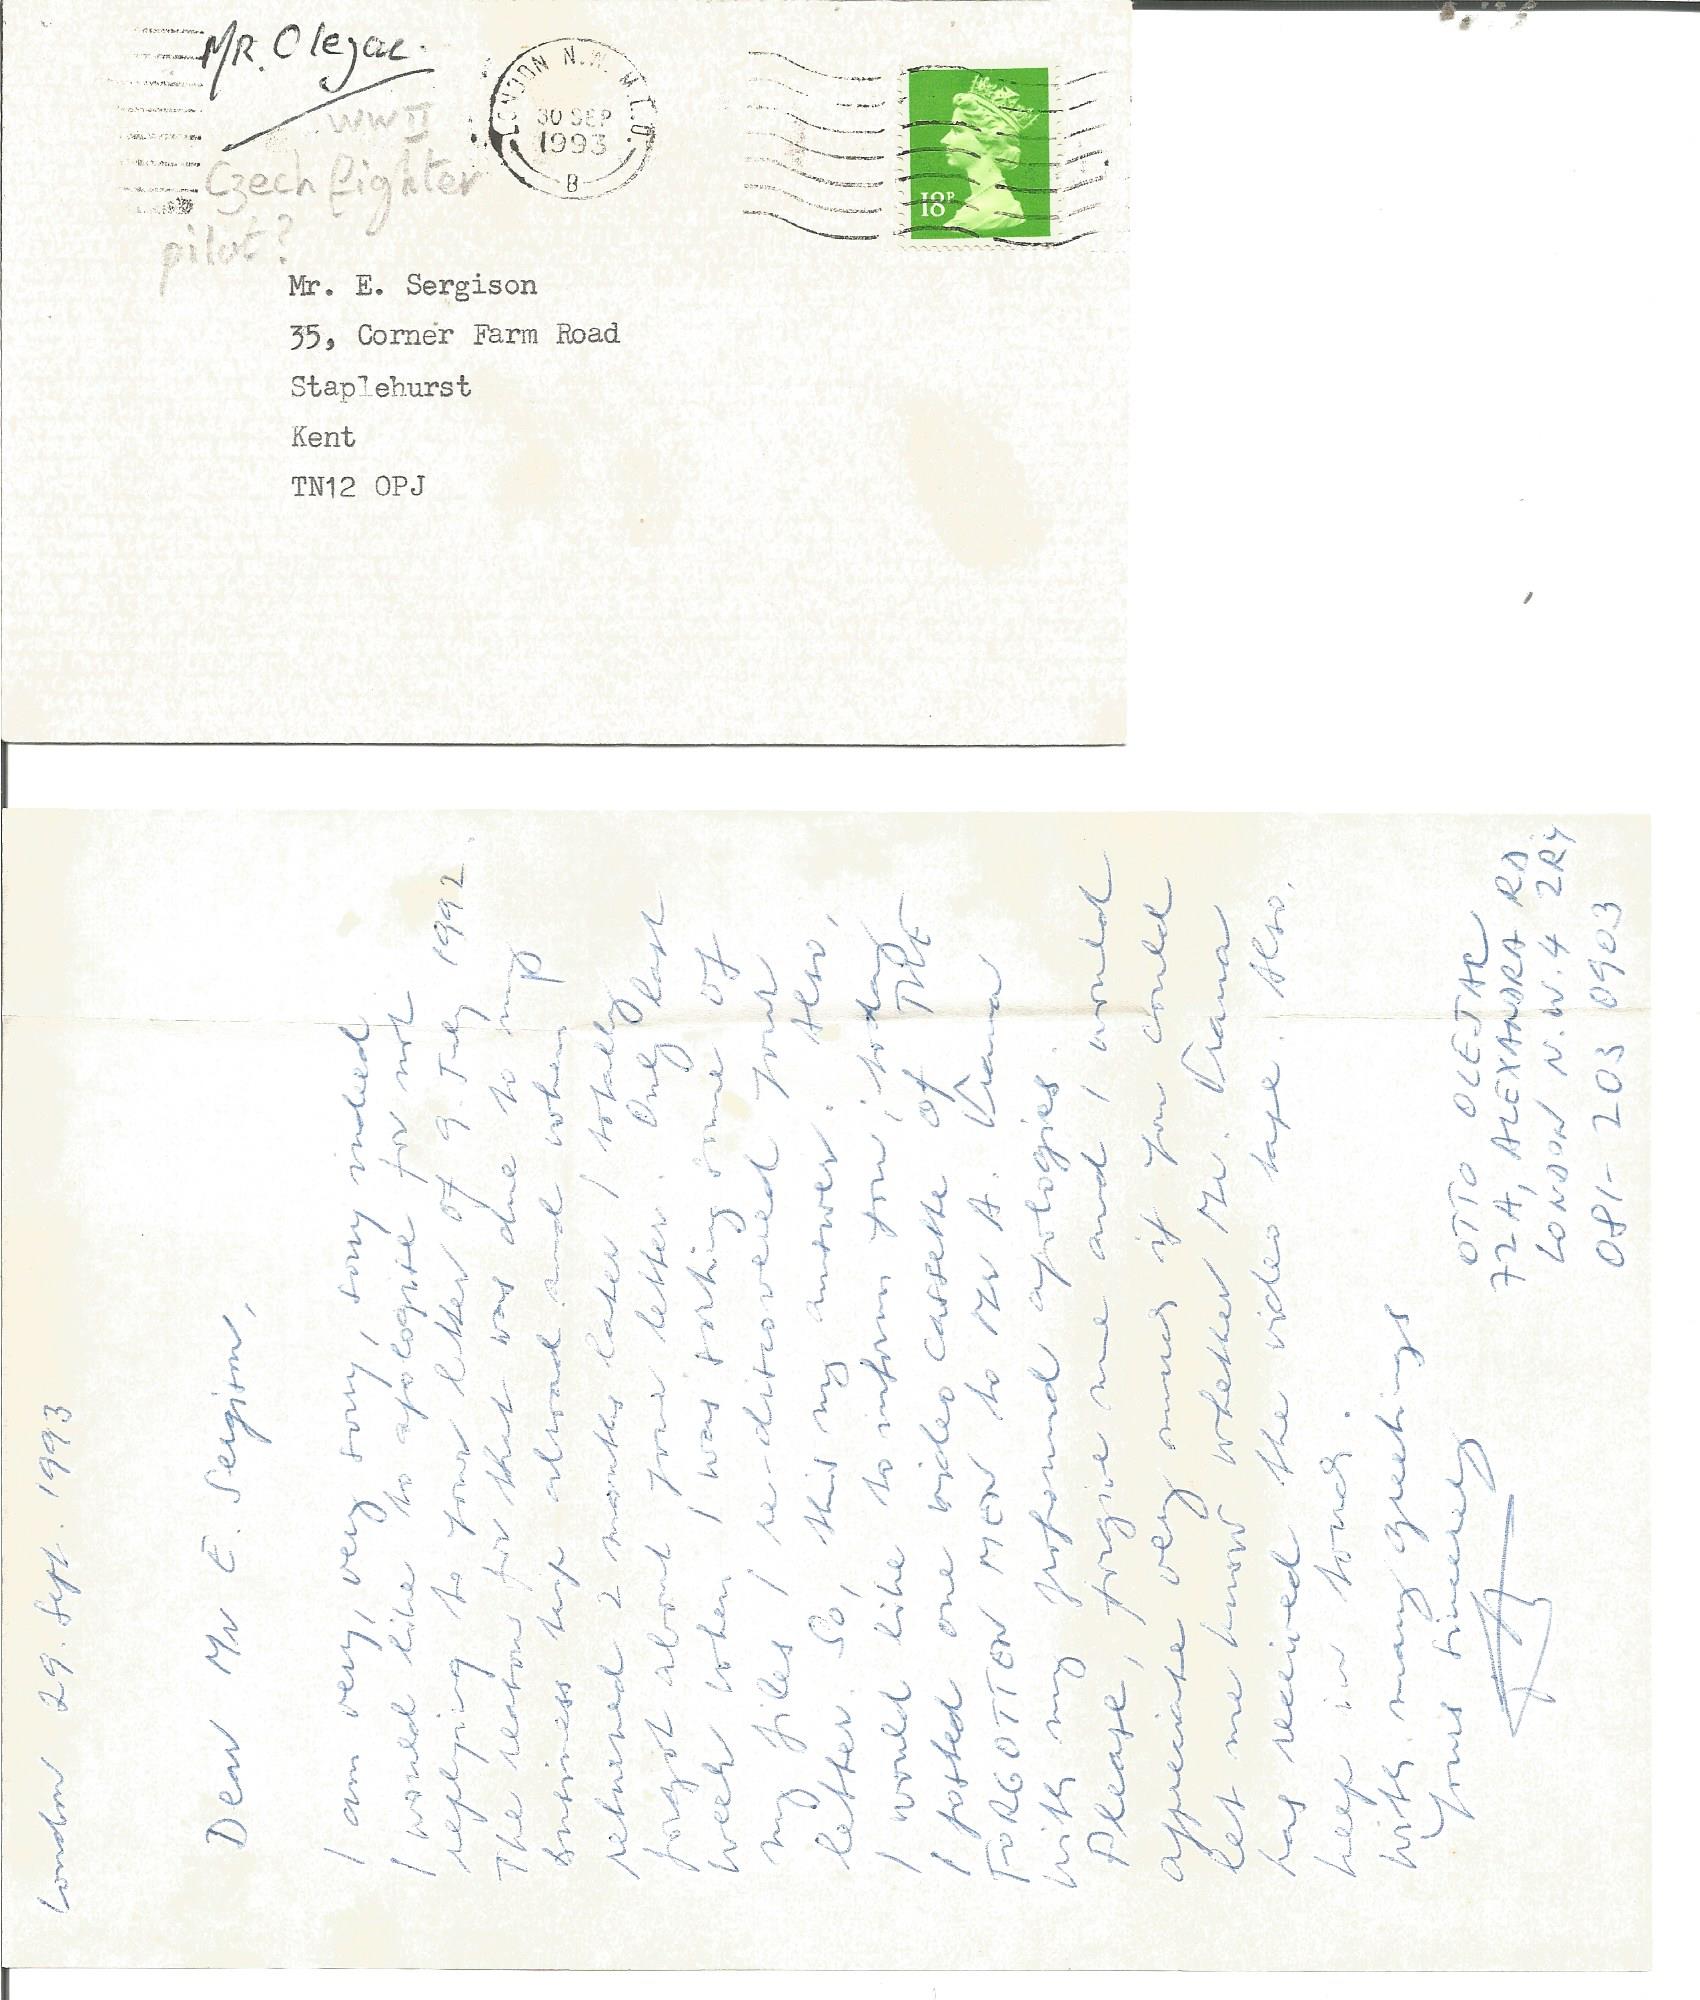 MR. Olejar
WW II
Czech fighter
pilot?
LONDON N.W. M.L.O.
30 SEP
1993
B
18P
Mr. E. Sergison
35, Corner Farm Road
Staplehurst
Kent
TN12 OPJ
London 29. Sept. 1993
Dear Mr E. Sergison,
I am very, very sorry, sorry indeed
I would like to apologise for not
replying to your letter of 9. July 1992.
The reason for that was due to my
business trip abroad and when
returned 2 months later I totally
forgot about your letter. Only last
week when I was sorting some of
my files I re-discovered your
letter. So, this my answer. Also,
I would like to inform you, today
I posted one video cassette of THE
FORGOTTEN MEN to Mr A. Vrana
with my profound apologies.
Please, forgive me and I would
appreciate very much if you could
let me know whether Mr. Vrana
has received the video tape. Also,
keep in touch.
With many greetings
Yours sincerely
OTTO OLEJAR
72A, ALEXANDRA RD
LONDON N.W.4 2RY
081-203 0903